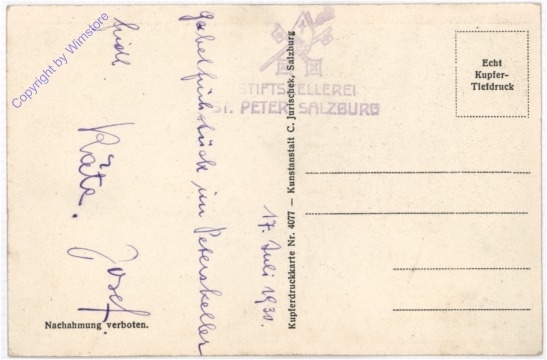 Copyright by Wimstore
17. Juli 1930.
Gabelfrühstück im Peterskeller
Käte. Josef
STIFTSKELLEREI
ST. PETER, SALZBURG
Kupferdruckkarte Nr. 4077 — Kunstanstalt C. Jurischek, Salzburg
Echt
Kupfer-
Tiefdruck
Nachahmung verboten.